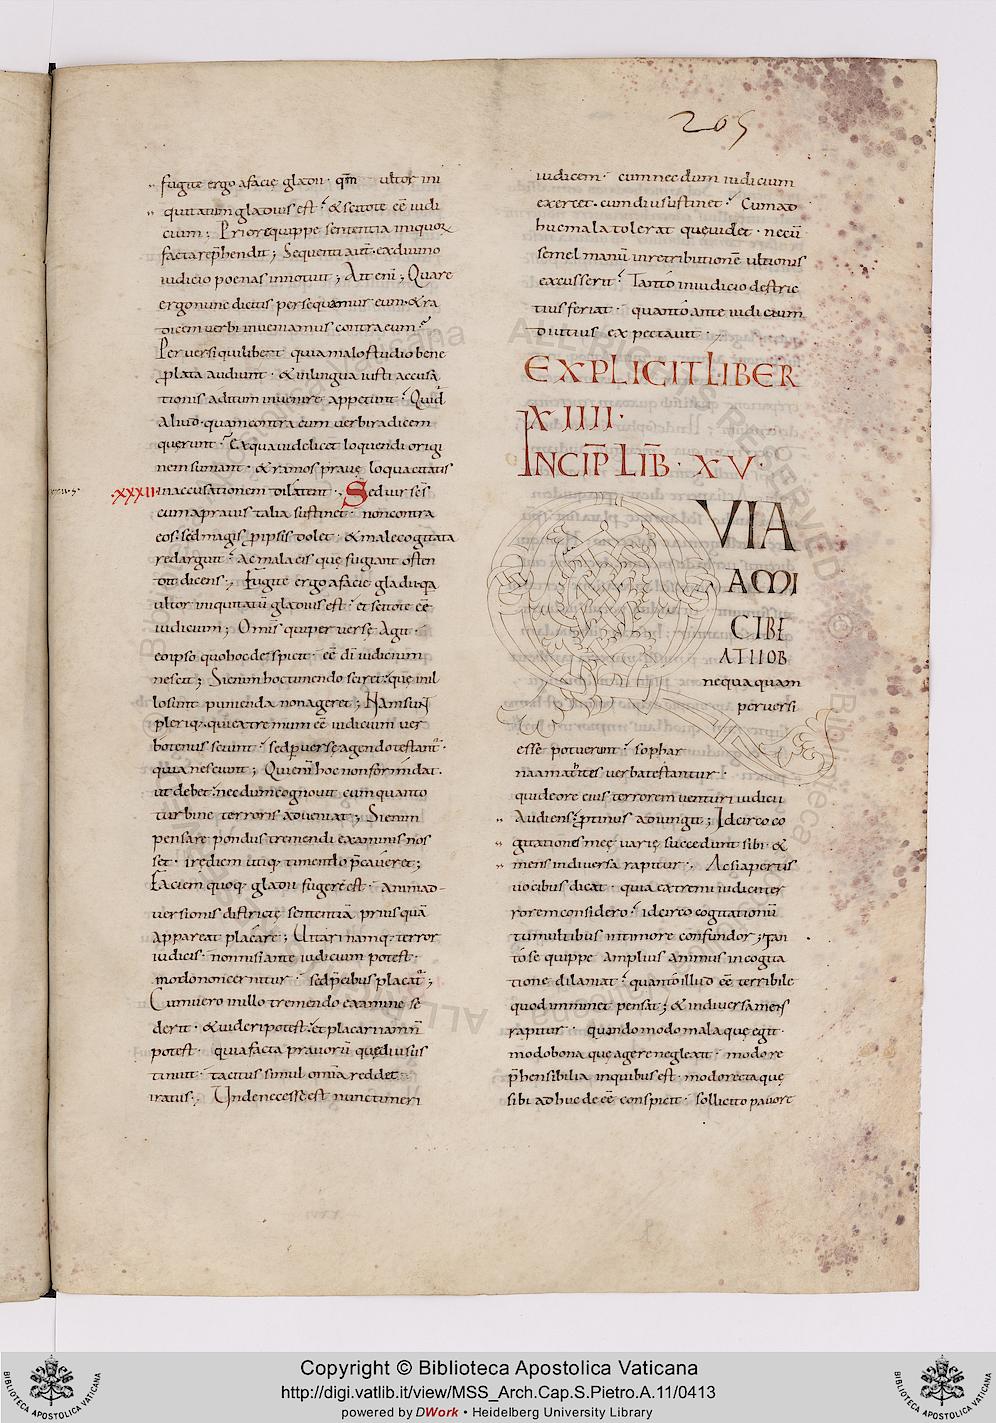 205
fugite ergo a facie gladii · qm̄ ultor ini
quitatum gladius est · & scitote eē iudi
cium ; Prior equippe sententia iniquor
facta rep̄hendit ; Sequenti aut̄ · ex diuino
iudicio poenas innotuit ; Ait eni ; Quare
ergo nunc dicitis persequamur eum · & ra
dicem uerbi inueniamus contra eum ·
Peruersi qui libent quia malo studio bene
plata audiunt · & in lingua iusti accusa
tionis aditum inuenire appetunt · Quid
aliud · quam contra eum uerbi radicem
querunt · Ex qua uidelicet loquendi origi
nem sumant · & ramos praue loquacitatis
XXXII · in accusationem dilatent · Sed uir scs̄
cum a prauis talia sustinet · non contra
eos · sed magis p ipsis dolet · & male cogitata
redarguit · Ac mala eis que fugiant osten
dit dicens · Fugite ergo a facie gladii · qa
ultor iniquitatū gladius est · et scitote eē
iudicium ; Omis qui peruerse agit ·
eo ipso quo hoc despicit · eē di iudicium
nescit ; Si enim hoc timendo sciret · que inul
losunt punienda non ageret ; Nam sunt
pleriq · qui extremum eē iudicium uer
botenus sciunt · sed peruerse agendo testant ·
quia nesciunt ; Qui eni hoc non formidat ·
ut debet · nec dum cognouit cum quanto
turbine terroris adueniat ; Si enim
pensare pondus tremendi examinis nos
set · ire diem utiq · timendo p̄caueret ;
Faciem quoq · gladii fugere est · animad-
uersionis districte sententiā prius quā
appareat placare ; Uitari namq · terror
iudicis · non nisi ante iudicium potest ·
modo non cernitur · sed p̄cibus placat ;
Cum uero in illo tremendo examine se
derit · & uideri potest · et placari iam n̄
potest · quia facta prauorū que diu sus
tinuit · tacitus simul omia reddet
iratus · Unde necesse est nunc timeri
iudicem · cum nec dum iudicium
exercet · cum diu sustinet · Cum ad
huc mala tolerat que uidet · ne cū
semel manū in retributione ultionis
excusserit · Tanto in iudicio destric
tius feriat · quanto ante iudicium
diutius expectauit ·
EXPLICIT LIBER
XIIII ·
INCIP̄ LIB̄ · XV ·
QVIA
AMI
CI BE
ATI IOB
nequaquam
peruersi
esse potuerunt · sophar
naamatites uerba testantur ·
qui de ore eius terrorem uenturi iudicii
audiens · ptinus adiungit ; Idcirco co
gitationes meę uarię succedunt sibi · &
mens in diuersa rapitur · Ac si apertis
uocibus dicat · quia extremi iudicii ter
rorem considero · idcirco cogitationū
tumultibus in timore confundor ; Tan
to se quippe amplius animus in cogita
tione dilaniat · quanto illud eē terribile
quod imminet pensat ; & in diuersa mens
rapitur · quando modo mala que egit ·
modo bona que agere neglexit · modo re
p̄hensibilia in quibus est · modo recta que
sibi adhuc deeē conspicit · sollicito pauore
Copyright © Biblioteca Apostolica Vaticana
http://digi.vatlib.it/view/MSS_Arch.Cap.S.Pietro.A.11/0413
powered by DWork • Heidelberg University Library
BIBLIOTECA APOSTOLICA VATICANA
BIBLIOTECA APOSTOLICA VATICANA